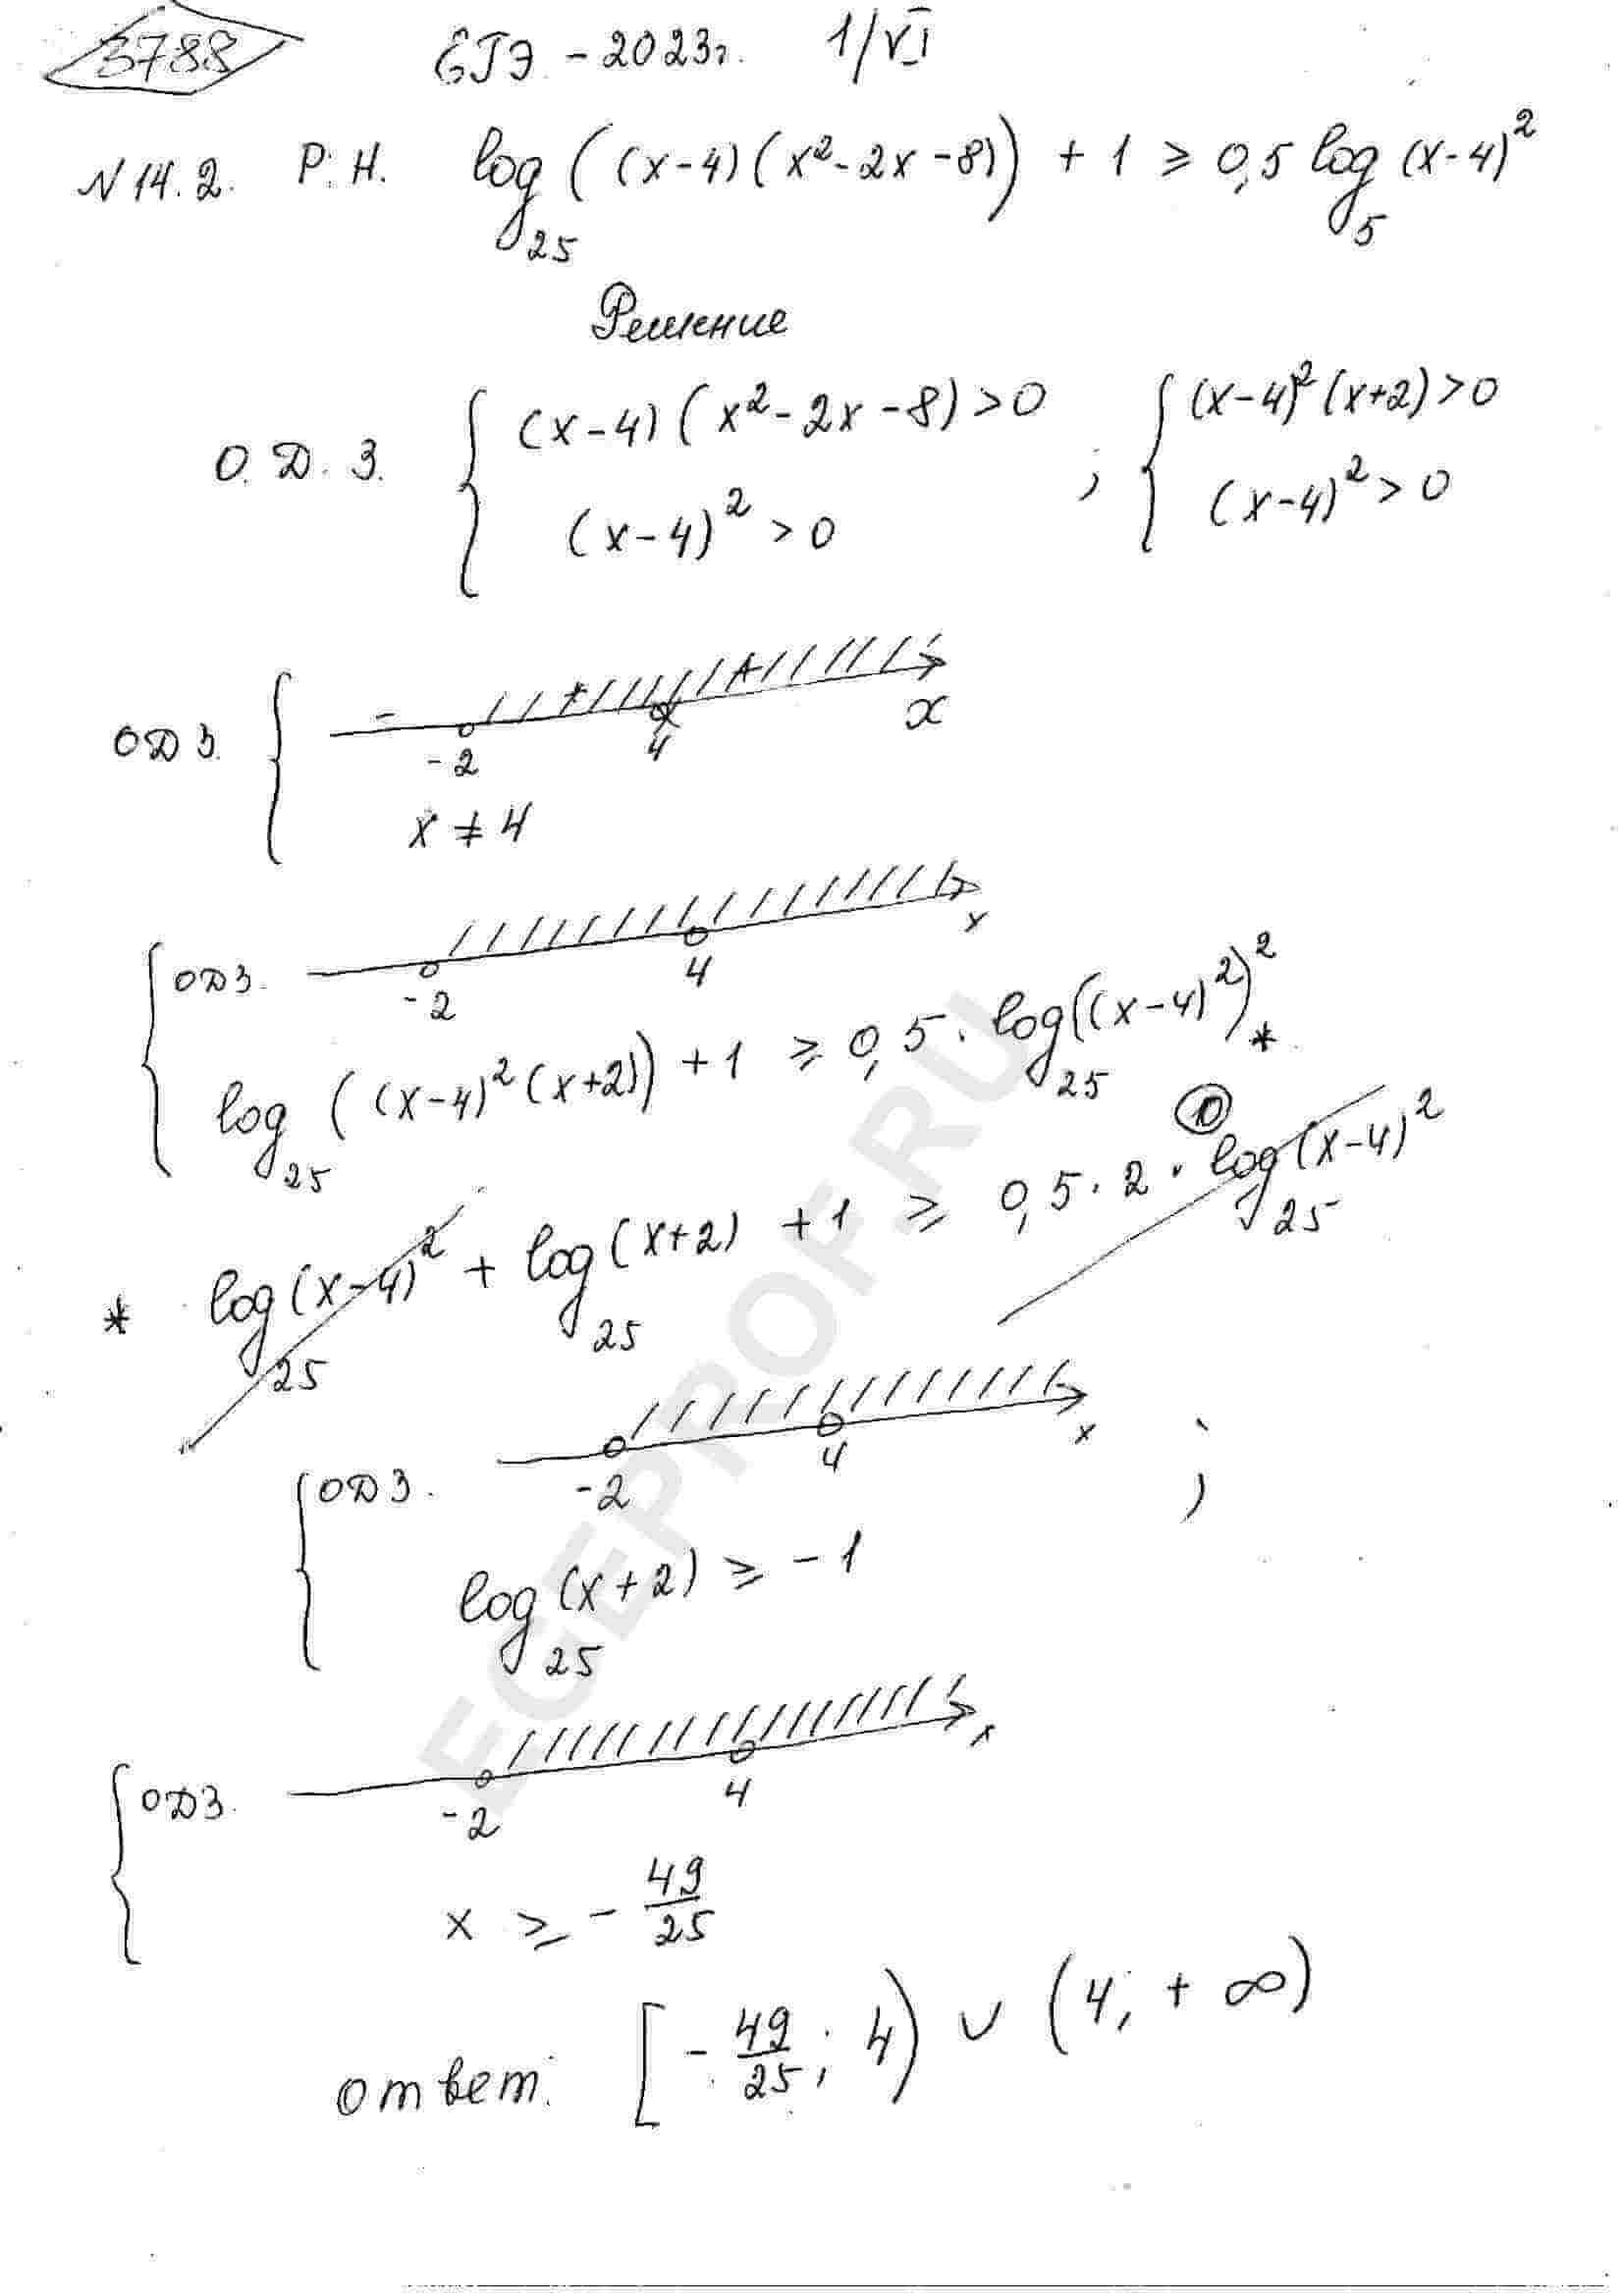 3788 ЕГЭ - 2023г. 1/VI
N14.2. Р.Н. log₂₅((x-4)(x²-2x-8)) + 1 ≥ 0,5 log₅(x-4)²
Решение
О.Д.З. { (x-4)(x²-2x-8)>0 ; { (x-4)²(x+2)>0
(x-4)²>0 (x-4)²>0
ОДЗ. { - + + x
-2 4
x ≠ 4
{ ОДЗ. -2 4 x
log₂₅((x-4)²(x+2)) + 1 ≥ 0,5 · log₂₅((x-4)²)² *
* log₂₅(x-4)² + log₂₅(x+2) + 1 ≥ 0,5 · 2 · log₂₅(x-4)²
{ ОДЗ. -2 4 x ;
log₂₅(x+2) ≥ -1
{ ОДЗ. -2 4 x
x ≥ - 49/25
ответ: [- 49/25; 4) ∪ (4, + ∞)
EGEPROF.RU